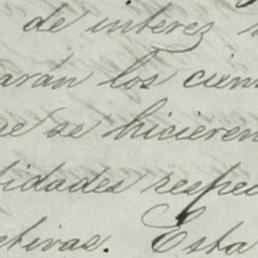 de interez
arán los cien
ue se hicieren
lidades respec
ctivas. Esta